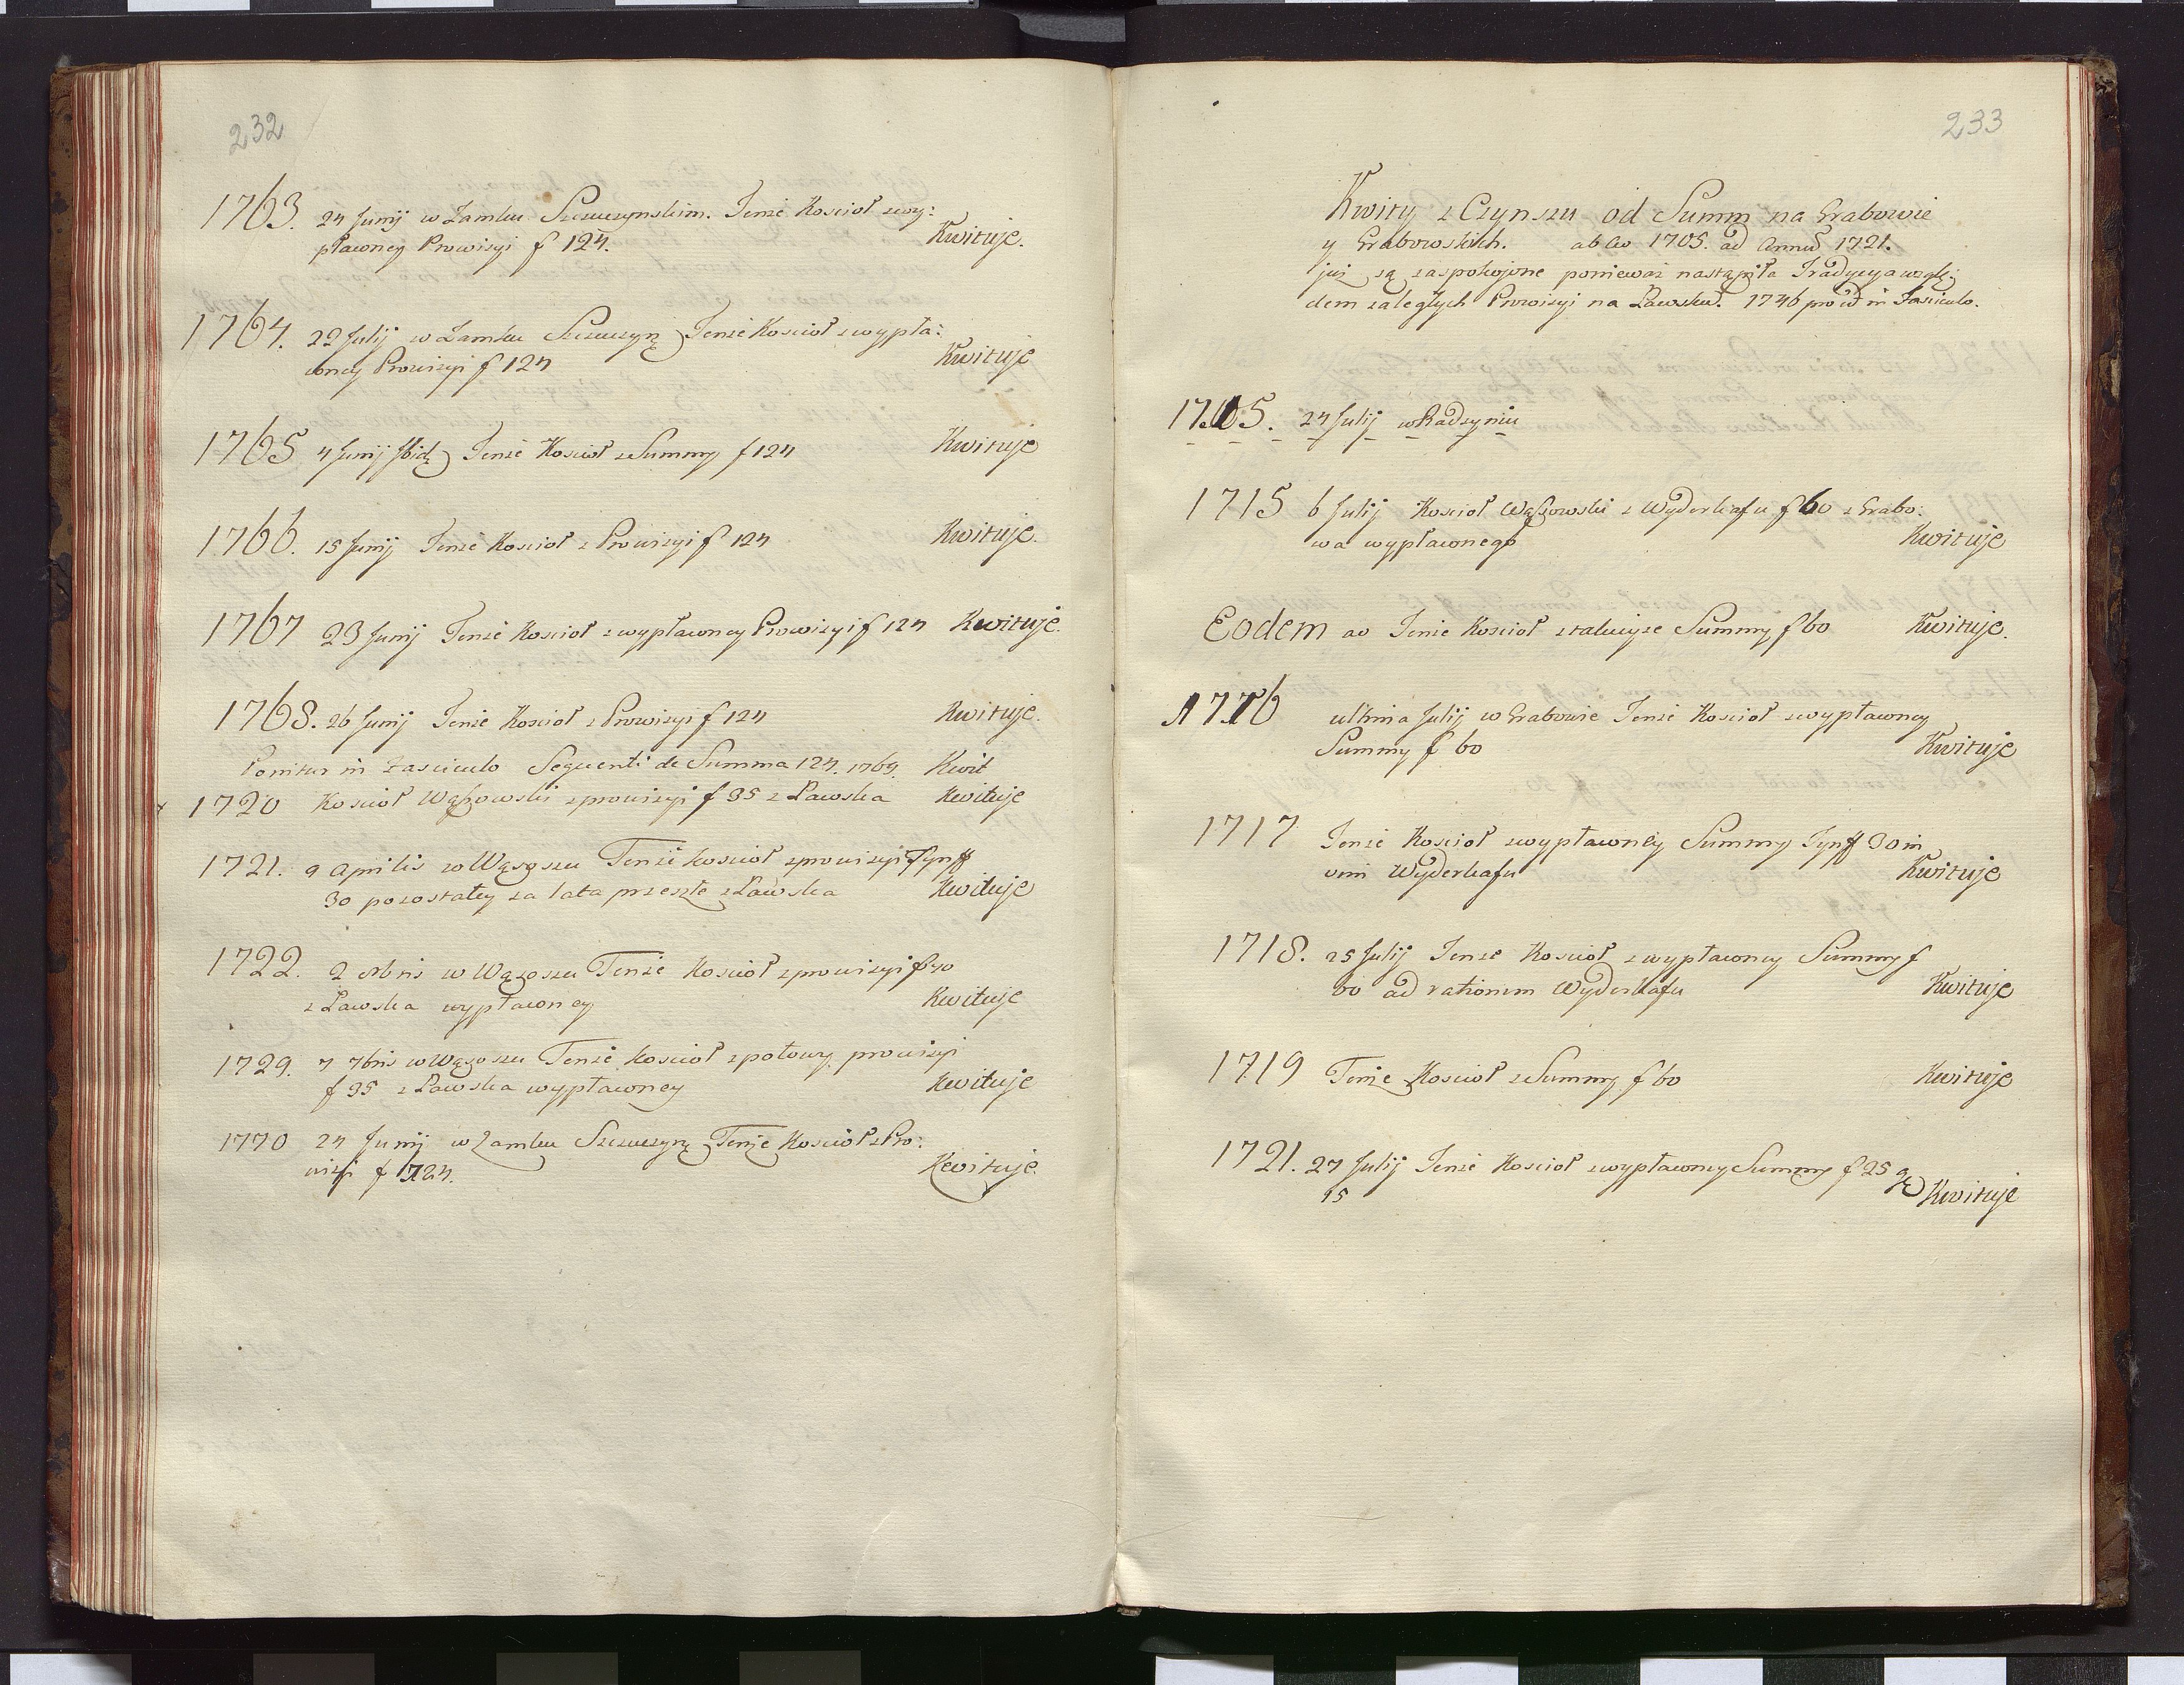 232
1763. 24 Junij w Zamku Szczuczynskim. Tenże Kościoł zwy:
płaconey Prowizyi f 124. Kwituje.
1764. 22 Julij w Zamku Szczuczyń Tenże Kościoł z wypła:
coney Prowizyi f 124 Kwituje
1765 4 Junij Ibidę Tenże Kościoł z Summy f 124 Kwituje
1766. 15 Junij Tenże Kościoł z Prowizyi f 124 Kwituje.
1767 23 Junij Tenże Kościoł z wypłaconey Prowizyi f 124 Kwituje.
1768. 26 Junij Tenże Kościoł z Prowizyi f 124 Kwituje.
Ponitur in Fasciculo Sequenti de Summa 124. 1769. Kwit
1720 Kościoł Wąsowski z prowizyi f 35 z Ławska Kwituje
1721. 9 Aprilis w Wąsoszu Tenże kościoł z prowizyi Tynff
30 pozostałey za lata przeszłe z Ławska Kwituje
1722. 2 w Wąsoszu Tenże Kościoł z prowizyi f 70
z Ławska wypłaconey Kwituje
1729. 7 7bris w Wąsoszu Tenże kościoł z połowy prowizyi
f 35 z Ławska wypłaconey Kwituje
1770 24 Junij w Zamku Szczuczyń Tenże Kościoł z Pro:
wizyi f 124. Kwituje.
233
Kwity z Czynszu od Summ na Grabowie
y Grabowskich. ab Ao 1705. ad Annũ 1721.
już są zaspokojone ponieważ nastąpiła Tradycya wzglę:
dem zaległych Prowizyi na Ławsku. 1746 in Fasciculo.
1705. 24 Julij w Radzyniu
1715 6 Julij Kościoł Wąsowski z Wyderkafu f 60 z Grabo:
wa wypłaconego Kwituje
Eodem ao Tenże Kościoł z takiejże Summy f 60 Kwituje.
1716 ultima Julij w Grabowie Tenże Kościoł z wypłaconey
Summy f 60 Kwituje
1717 Tenże Kościoł z wypłaconey Summy Tynff 30 in
vim Wyderkafu Kwituje
1718. 25 Julij Tenże Kościoł z wypłaconey Summy f
60 ad rationem Wyderkafu Kwituje
1719 Tenże Kościoł z Summy f 60 Kwituje
1721. 27 Julij Tenże Kościoł z wypłaconey Summy f 25 gr
15 Kwituje